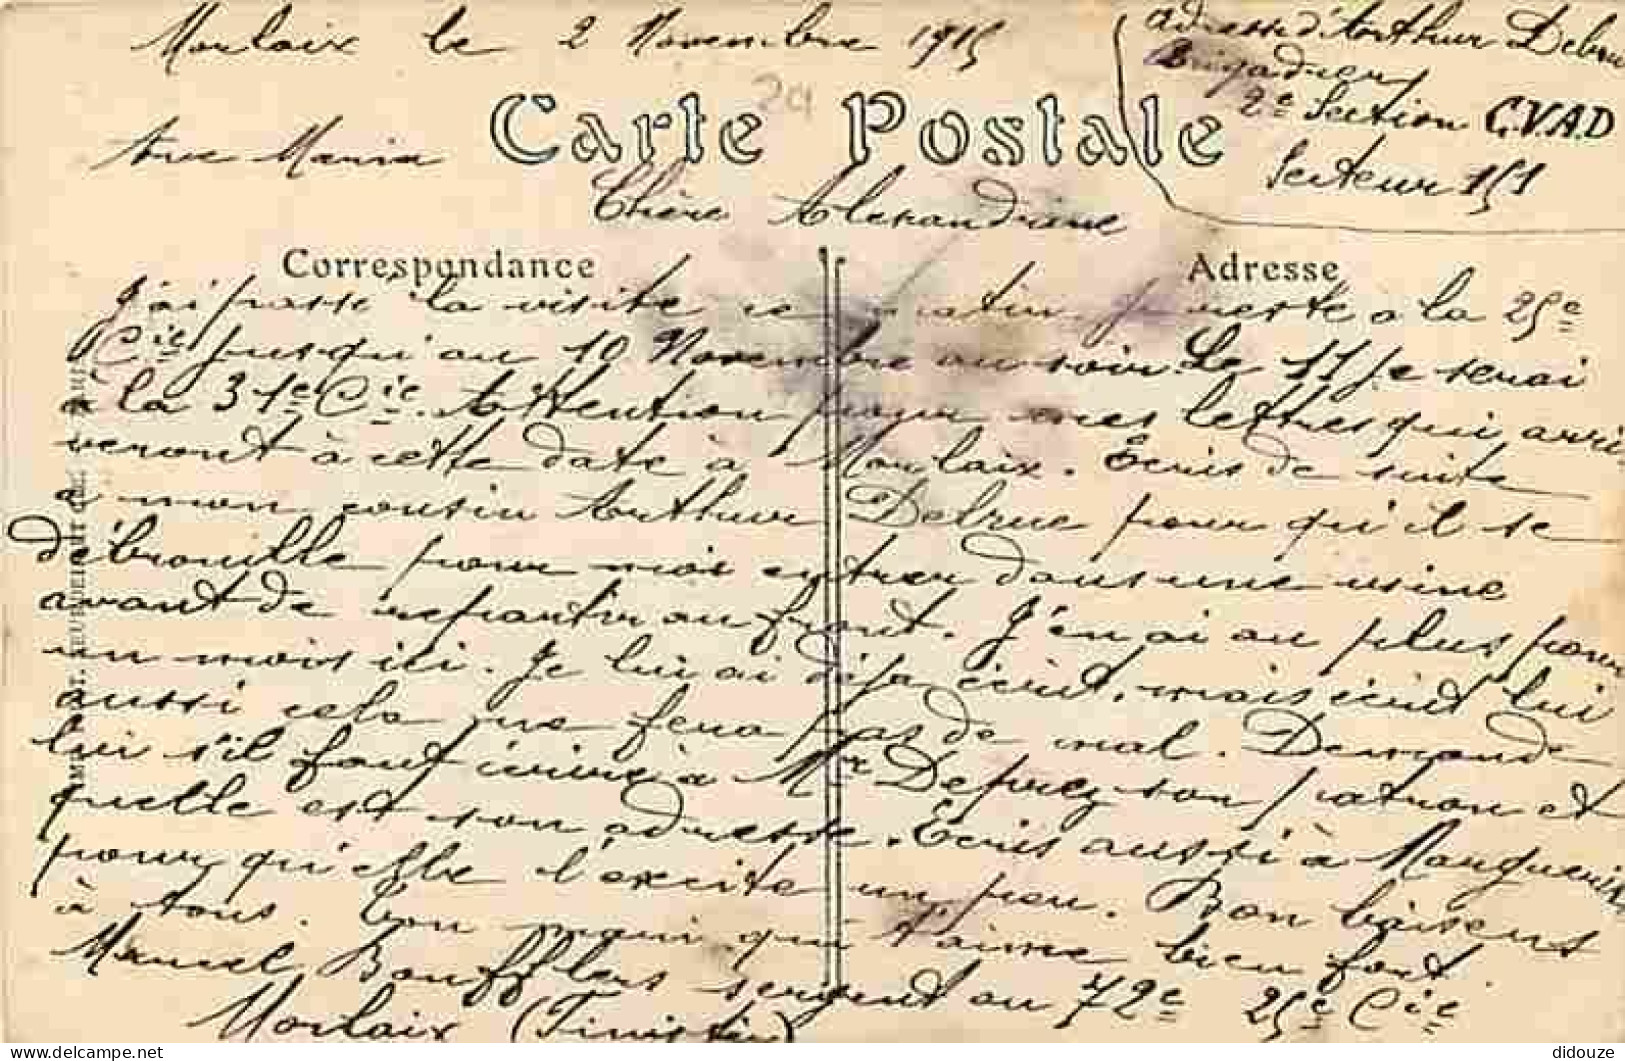 Morlaix le 2 Novembre 1915
adresse d'Arthur Delrue
Brigadier
2e Section C.V.A.D
Secteur 151
24
Carte Postale
Ave Maria
Chère Alexandrine
Correspondance
Adresse
J'ai passé la visite ce matin je reste à la 25e
Cie jusqu'au 10 Novembre au soir Le 11 je serai
à la 31e Cie. Attention pour mes lettres qui arri-
veront à cette date à Morlaix. Ecris de suite
a mon cousin Arthur Delrue pour qu'il se
débrouille pour moi entrer dans une usine
avant de repartir au front. J'en ai au plus pour
un mois ici. Je lui ai déja écrit, mais écrit lui
aussi cela ne fera pas de mal. Demande
lui s'il faut écrire à Mr Deprez son patron et
quelle est son adresse. Ecris aussi à Marguerite
pour qu'elle l'excite un peu. Bon baisers
à tous. Ton mari qui t'aime bien fort.
Marcel Boufflers sergent au 72e 25e Cie
Morlaix (Finistère)
didouze
delcampe.net